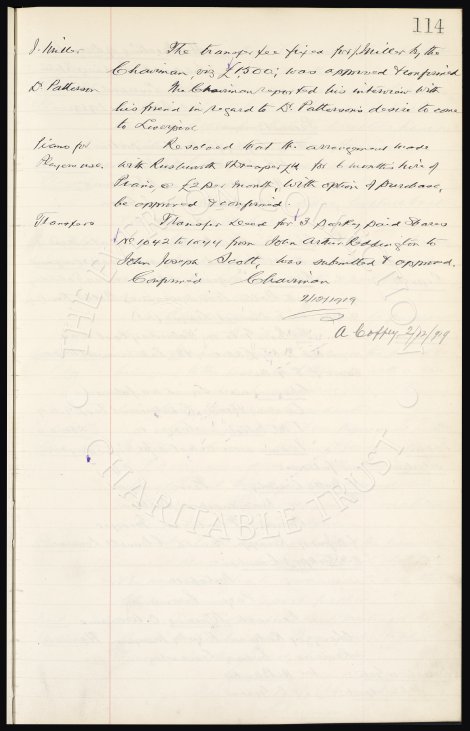 114
J. Miller The transfer fee fixed for J. Miller by the
Chairman, viz £1500; was approved & confirmed
Dr Patterson The Chairman reported his interview with
his friend in regard to Dr Patterson's desire to come
to Liverpool
Piano for Resolved that the arrangement made
Players use. with Rushworth & Dreaper Ltd for 6 months hire of
Piano @ £2 per month, with option of purchase,
be approved & confirmed.
Transfers Transfer Deed for 3 partly paid Shares
No 1042 to 1044 from John Arthur Reddington to
John Joseph Scott, was submitted & approved.
Confirmed Chairman
2/12/1919
A Coffey 2/12/1919
THE EVERTON COLLECTION
CHARITABLE TRUST